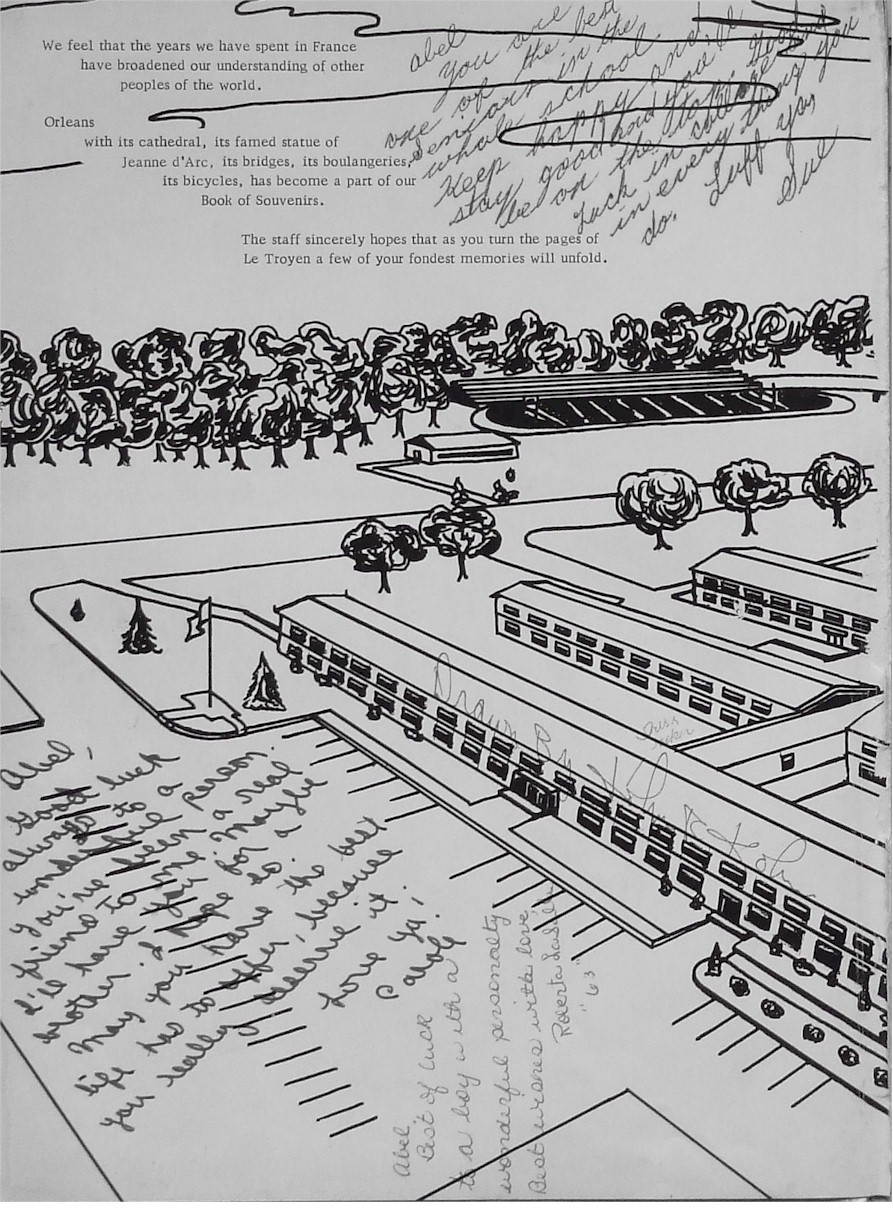 We feel that the years we have spent in France
have broadened our understanding of other
peoples of the world.
Orleans
with its cathedral, its famed statue of
Jeanne d'Arc, its bridges, its boulangeries,
its bicycles, has become a part of our
Book of Souvenirs.
The staff sincerely hopes that as you turn the pages of
Le Troyen a few of your fondest memories will unfold.
abel
You are
one of the best
seniors in the
whole school.
Keep happy and
stay good and you'll
be on the top. Good
Luck in college
in every thing you
do. Luff ya,
Sue
Drawn By
Kohn
Abel,
Good luck
always to a
wonderful person.
You've been a real
friend to me maybe
I'll have you for a
brother. I hope so.
May you have the best
life has to offer, because
you really deserve it.
Love Ya,
Carole
Abel
Best of Luck
to a boy with a
wonderful personalty
Best wishes with love,
Roberta
"63"